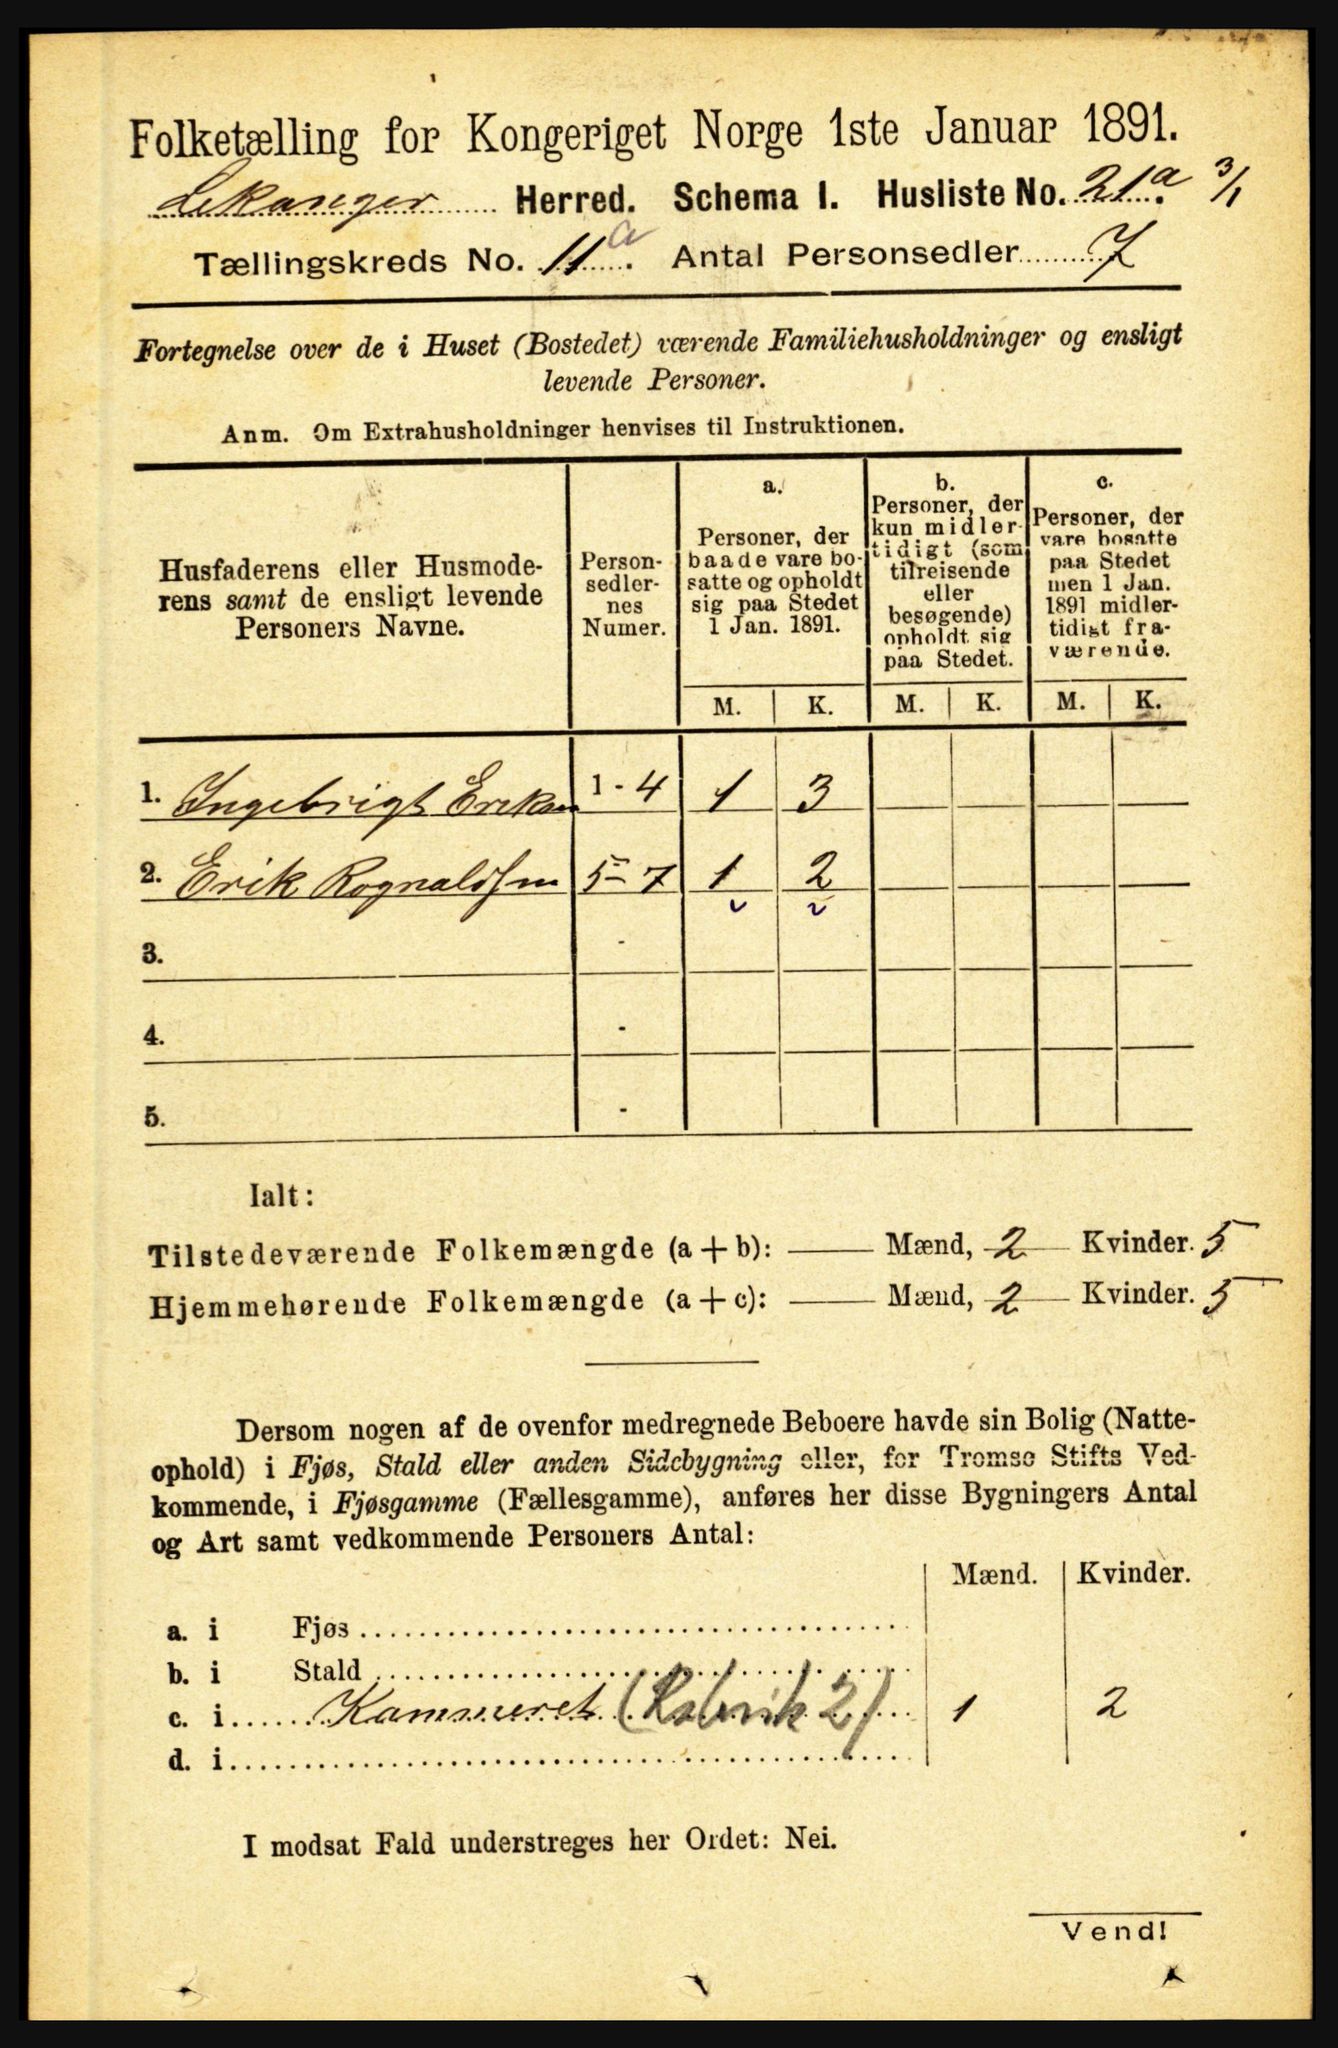 Folketælling for Kongeriget Norge 1ste Januar 1891.
Lekanger Herred. Schema I. Husliste No. 21a. 3/1
Tællingskreds No. 11a. Antal Personsedler 7
Fortegnelse over de i Huset (Bostedet) værende Familiehusholdninger og ensligt
levende Personer.
Anm. Om Extrahusholdninger henvises til Instruktionen.
Husfaderens eller Husmode-
rens samt de ensligt levende
Personers Navne.
Person-
sedler-
nes
Numer.
a.
Personer, der
baade vare bo-
satte og opholdt
sig paa Stedet
1 Jan. 1891.
b.
Personer, der
kun midler-
tidigt (som
tilreisende
eller
besøgende)
opholdt sig
paa Stedet.
c.
Personer, der
vare bosatte
paa Stedet
men 1 Jan.
1891 midler-
tidigt fra-
værende.
M. K. M. K. M. K.
1. Ingebrigt Eriksen 1 - 4 1 3
2. Erik Rognaldsen 5 - 7 1 2
3. -
4. -
5. -
Ialt:
Tilstedeværende Folkemængde (a + b): Mænd, 2 Kvinder. 5
Hjemmehørende Folkemængde (a + c): Mænd, 2 Kvinder. 5
Dersom nogen af de ovenfor medregnede Beboere havde sin Bolig (Natte-
ophold) i Fjøs, Stald eller anden Sidebygning eller, for Tromsø Stifts Ved-
kommende, i Fjøsgamme (Fællesgamme), anføres her disse Bygningers Antal
og Art samt vedkommende Personers Antal:
Mænd. Kvinder.
a. i Fjøs
b. i Stald
c. i Kammeret (Rubrik 2) 1 2
d. i
I modsat Fald understreges her Ordet: Nei.
Vend!